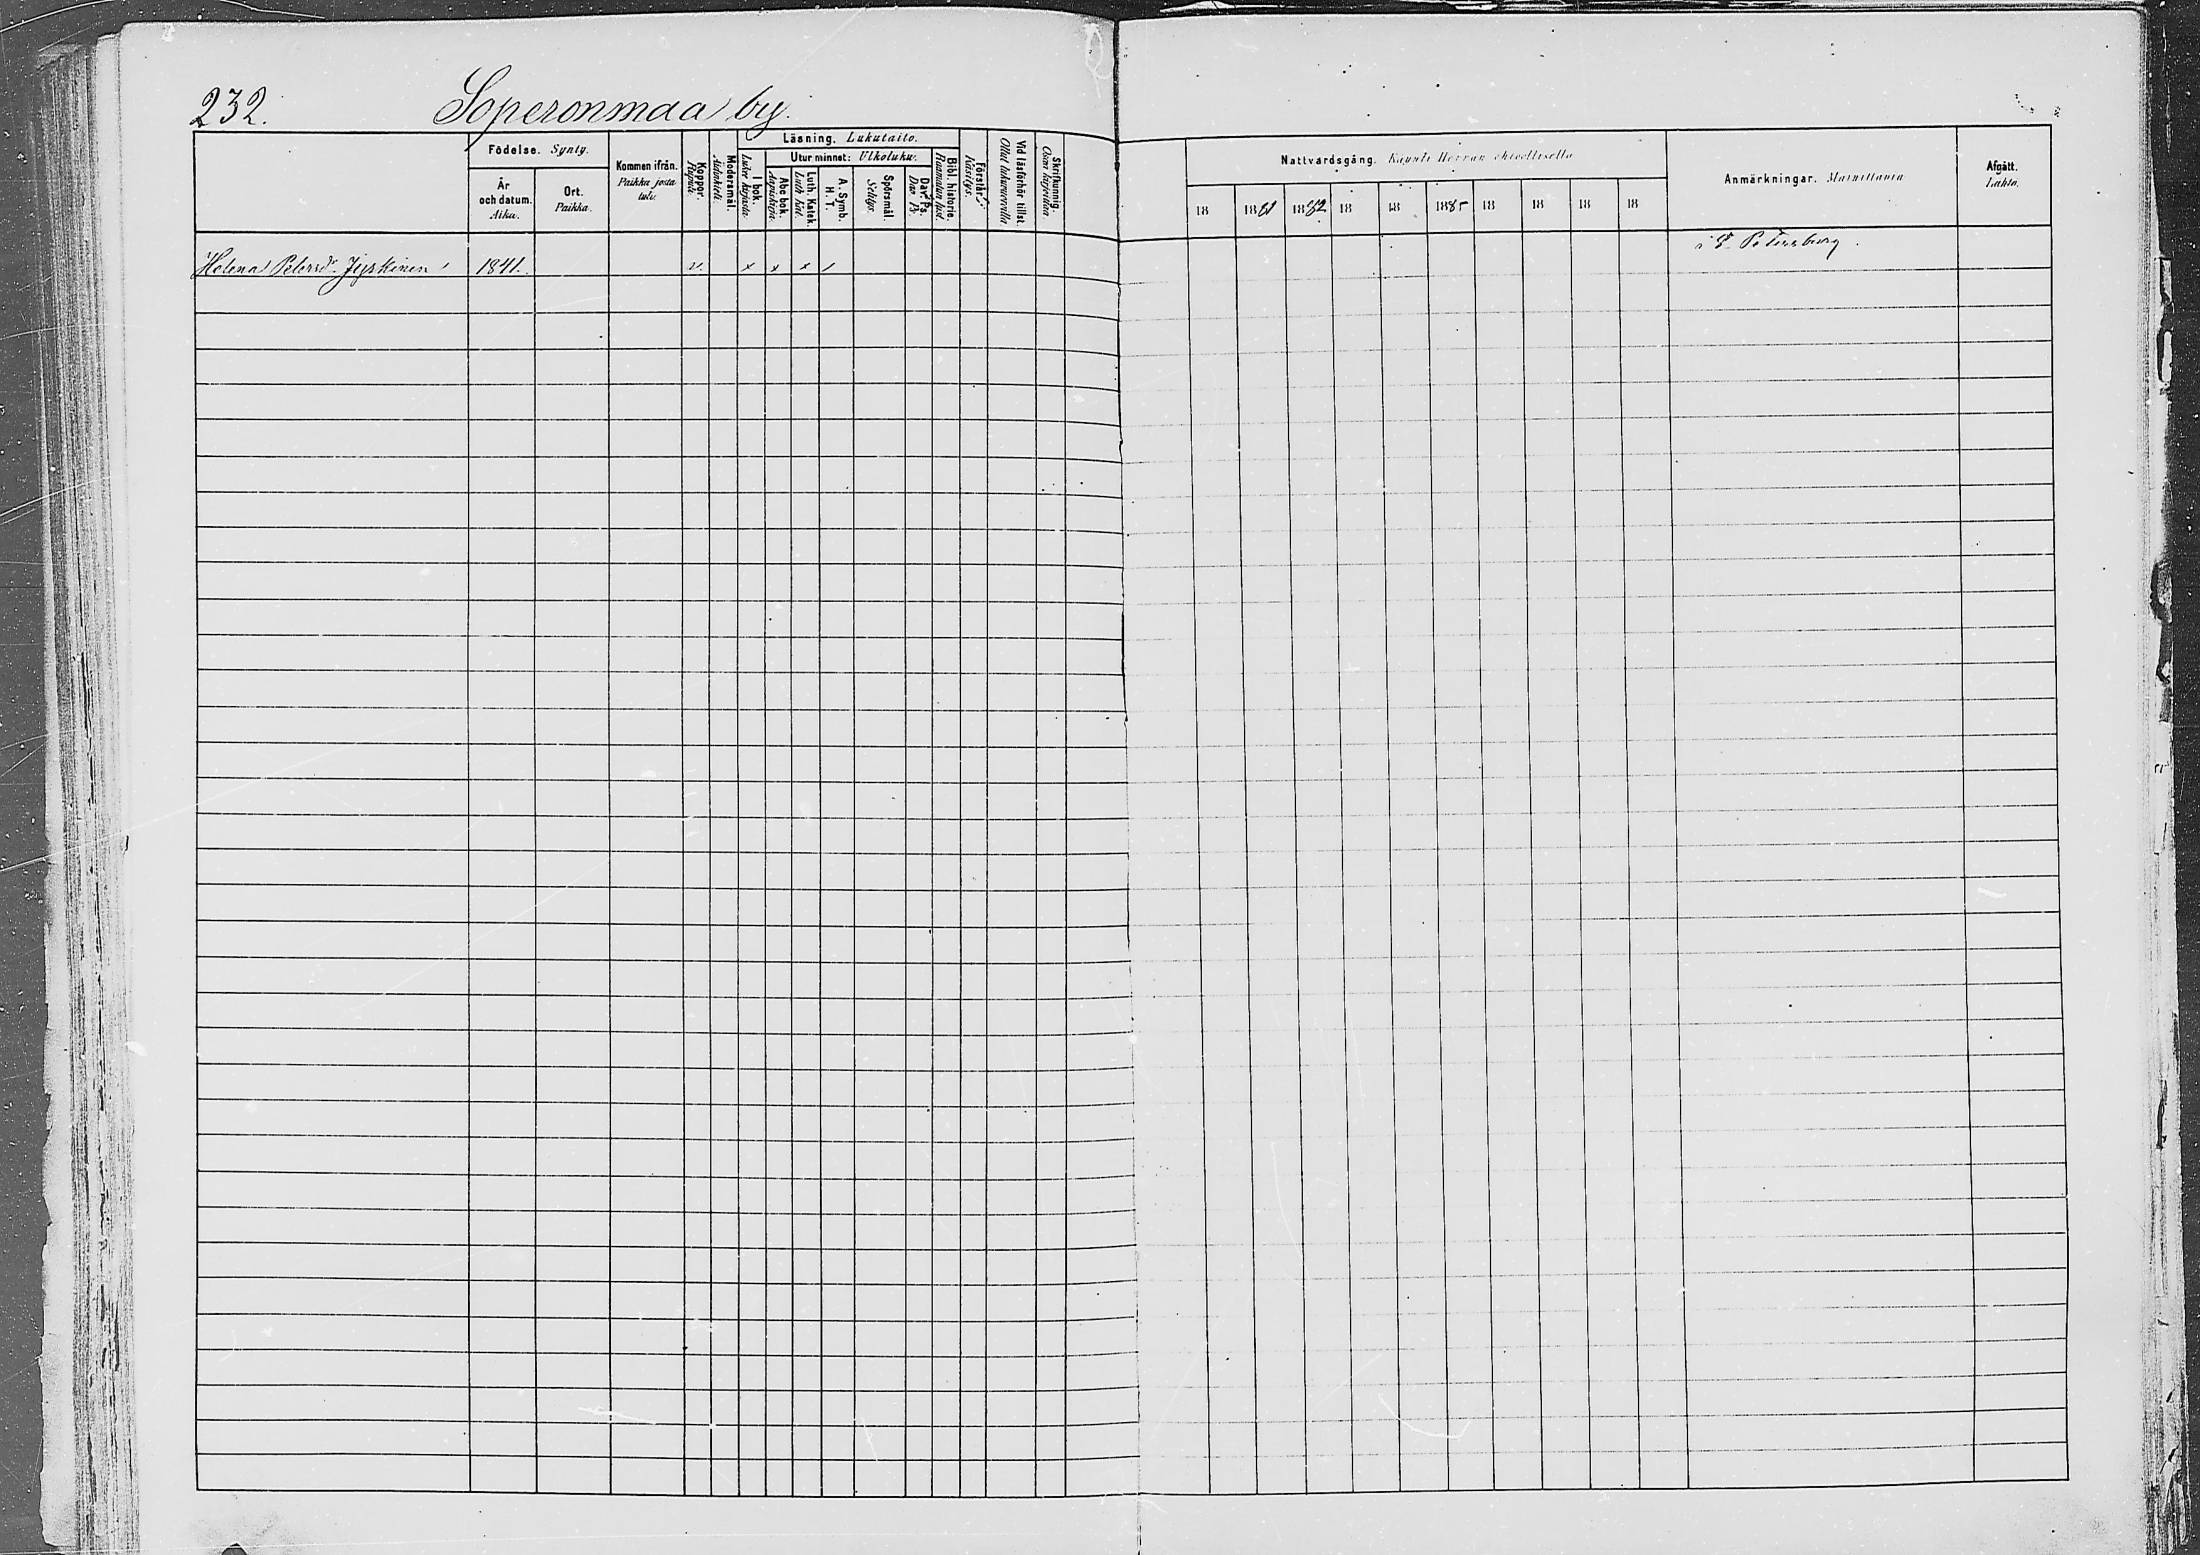 232. Soperonmaa by.
Födelse. Synty.
År och datum. Aika.
Ort. Paikka.
Kommen ifrån. Paikka josta tuli.
Koppor. Rupuli.
Modersmål. Äidinkieli
Läsning. Lukutaito.
I bok. Lukee kirjasta.
Utur minnet: Ulkoluku.
Abc bok. Aapiskirja.
Luth. Katek. Luth Kat.
A. Symb. H. T.
Spörsmål. Selitys.
Dav. Ps. Dav Ps.
Bibl. historie. Raamatun hist.
Förstår. Käsitys.
Vid läsförhör tillst. Ollut lukuvuoroilla
Skrifkunnig. Osaa kirjoittaa.
Nattvardsgång. Käynti Herran ehtoollisella
18 1881 1882 18 18 1885 18 18 18 18
Anmärkningar. Muistutuksia
Afgått. Lähtö.
i St Petersburg.
Helena Petersdr Jyrkinen 1841. v. x x x /